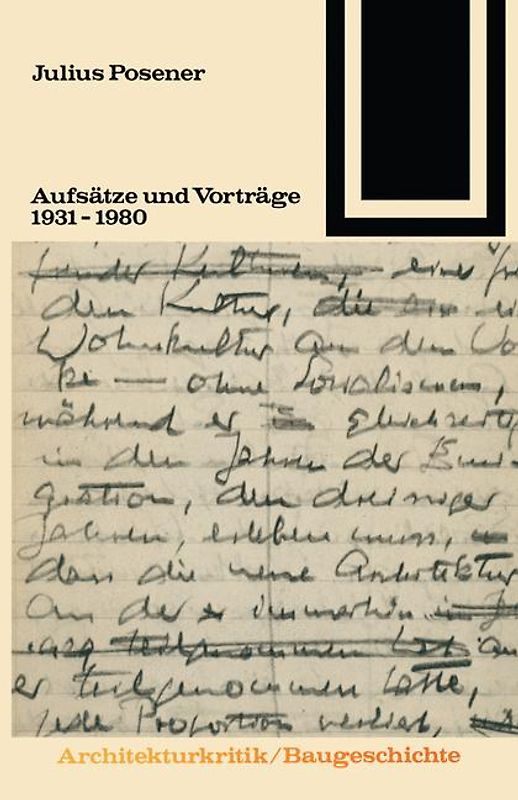 Julius Posener
Aufsätze und Vorträge
1931 - 1980
fremder Kulturen, eine
den Kultur, die ein
Wohnkultur an dem
ke — ohne Sozialismus,
während er gleichzeitig
in den Jahren der Emi-
gration, den dreissiger
Jahren, erleben muss,
dass die neue Architektur
an der er immerhin
1929 teilgenommen hat an
er teilgenommen hatte,
jede Proportion verliert,
Architekturkritik/Baugeschichte